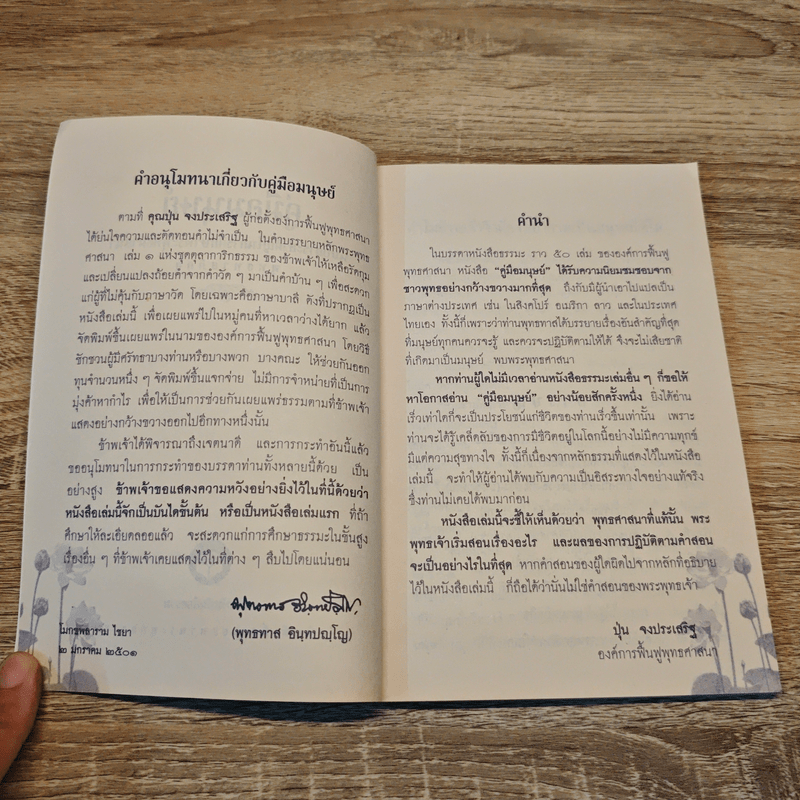 คำอนุโมทนาเกี่ยวกับคู่มือมนุษย์
ตามที่ คุณปุ่น จงประเสริฐ ผู้ก่อตั้งองค์การฟื้นฟูพุทธศาสนา
ได้ย่นใจความและตัดทอนคำไม่จำเป็น ในคำบรรยายหลักพระพุทธ
ศาสนา เล่ม ๑ แห่งชุดตุลาการิกธรรม ของข้าพเจ้าให้เหลือรัดกุม
และเปลี่ยนแปลงถ้อยคำจากคำวัด ๆ มาเป็นคำบ้าน ๆ เพื่อสะดวก
แก่ผู้ที่ไม่คุ้นกับภาษาวัด โดยเฉพาะคือภาษาบาลี ดังที่ปรากฏเป็น
หนังสือเล่มนี้ เพื่อเผยแผ่ไปในหมู่คนที่หาเวลาว่างได้ยาก แล้ว
จัดพิมพ์ขึ้นเผยแพร่ในนามขององค์การฟื้นฟูพุทธศาสนา โดยวิธี
ชักชวนผู้มีศรัทธาบางท่านหรือบางพวก บางคณะ ให้ช่วยกันออก
ทุนจำนวนหนึ่ง ๆ จัดพิมพ์ขึ้นแจกจ่าย ไม่มีการจำหน่ายที่เป็นการ
มุ่งค้าหากำไร เพื่อให้เป็นการช่วยกันเผยแพร่ธรรมตามที่ข้าพเจ้า
แสดงอย่างกว้างขวางออกไปอีกทางหนึ่งนั้น
ข้าพเจ้าได้พิจารณาถึงเจตนาดี และการกระทำอันนี้แล้ว
ขออนุโมทนาในการกระทำของบรรดาท่านทั้งหลายนี้ด้วย เป็น
อย่างสูง ข้าพเจ้าขอแสดงความหวังอย่างยิ่งไว้ในที่นี้ด้วยว่า
หนังสือเล่มนี้จักเป็นบันไดขั้นต้น หรือเป็นหนังสือเล่มแรก ที่ถ้า
ศึกษาให้ละเอียดลออแล้ว จะสะดวกแก่การศึกษาธรรมะในขั้นสูง
เรื่องอื่น ๆ ที่ข้าพเจ้าเคยแสดงไว้ในที่ต่าง ๆ สืบไปโดยแน่นอน
พุทธทาส อินฺทปญฺโญ
(พุทธทาส อินฺทปญฺโญ)
โมกขพลาราม ไชยา
๒ มกราคม ๒๕๐๑
คำนำ
ในบรรดาหนังสือธรรมะ ราว ๕๐ เล่ม ขององค์การฟื้นฟู
พุทธศาสนา หนังสือ "คู่มือมนุษย์" ได้รับความนิยมชมชอบจาก
ชาวพุทธอย่างกว้างขวางมากที่สุด ถึงกับมีผู้นำเอาไปแปลเป็น
ภาษาต่างประเทศ เช่น ในสิงคโปร์ อเมริกา ลาว และในประเทศ
ไทยเอง ทั้งนี้ก็เพราะว่าท่านพุทธทาสได้บรรยายเรื่องอันสำคัญที่สุด
ที่มนุษย์ทุกคนควรจะรู้ และควรจะปฏิบัติตามให้ได้ จึงจะไม่เสียชาติ
ที่เกิดมาเป็นมนุษย์ พบพระพุทธศาสนา
หากท่านผู้ใดไม่มีเวลาอ่านหนังสือธรรมะเล่มอื่น ๆ ก็ขอให้
หาโอกาสอ่าน "คู่มือมนุษย์" อย่างน้อยสักครั้งหนึ่ง ยิ่งได้อ่าน
เร็วเท่าใดก็จะเป็นประโยชน์แก่ชีวิตของท่านเร็วขึ้นเท่านั้น เพราะ
ท่านจะได้รู้เคล็ดลับของการมีชีวิตอยู่ในโลกนี้อย่างไม่มีความทุกข์
มีแต่ความสุขทางใจ ทั้งนี้ก็เนื่องจากหลักธรรมที่แสดงไว้ในหนังสือ
เล่มนี้ จะทำให้ผู้อ่านได้พบกับความเป็นอิสระทางใจอย่างแท้จริง
ซึ่งท่านไม่เคยได้พบมาก่อน
หนังสือเล่มนี้จะชี้ให้เห็นด้วยว่า พุทธศาสนาที่แท้นั้น พระ
พุทธเจ้าเริ่มสอนเรื่องอะไร และผลของการปฏิบัติตามคำสอน
จะเป็นอย่างไรในที่สุด หากคำสอนของผู้ใดผิดไปจากหลักที่อธิบาย
ไว้ในหนังสือเล่มนี้ ก็ถือได้ว่านั่นไม่ใช่คำสอนของพระพุทธเจ้า
ปุ่น จงประเสริฐ
องค์การฟื้นฟูพุทธศาสนา